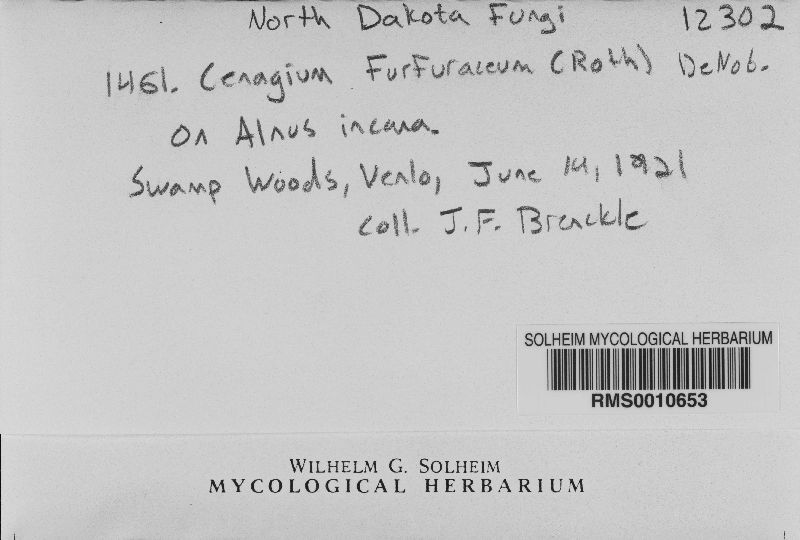 North Dakota Fungi 12302
1461. Cenagium Furfuraceum (Roth) DeNob.
On Alnus incana.
Swamp Woods, Venlo, June 14, 1921
Coll. J.F. Brenckle
SOLHEIM MYCOLOGICAL HERBARIUM
RMS0010653
WILHELM G. SOLHEIM
MYCOLOGICAL HERBARIUM